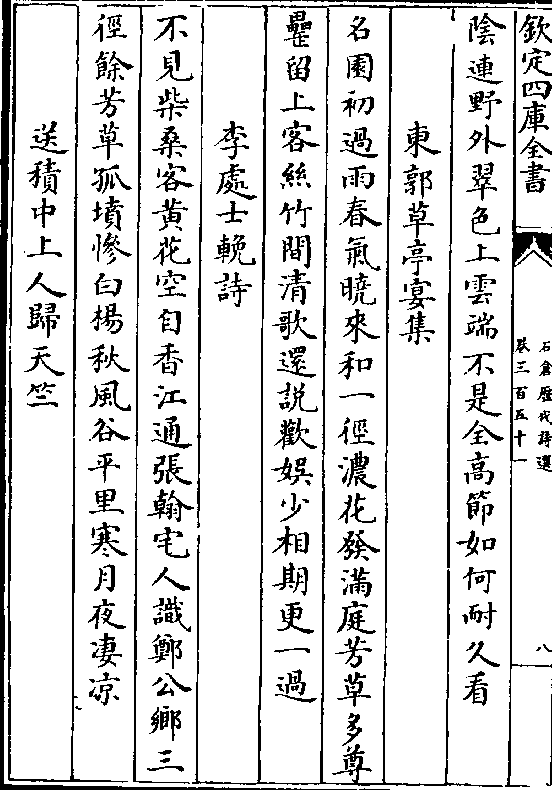 欽定四庫全書
石倉歷代詩選
卷三百五十一
八
陰連野外翠色上雲端不是全高節如何耐久看
東郭草亭宴集
名園初過雨春氣曉來和一徑濃花發滿庭芳草多尊
罍留上客絲竹間清歌還説歡娛少相期更一過
李處士輓詩
不見柴桑客黄花空自香江通張翰宅人識鄭公鄉三
徑餘芳草孤墳慘白楊秋風谷平里寒月夜凄凉
送積中上人歸天竺